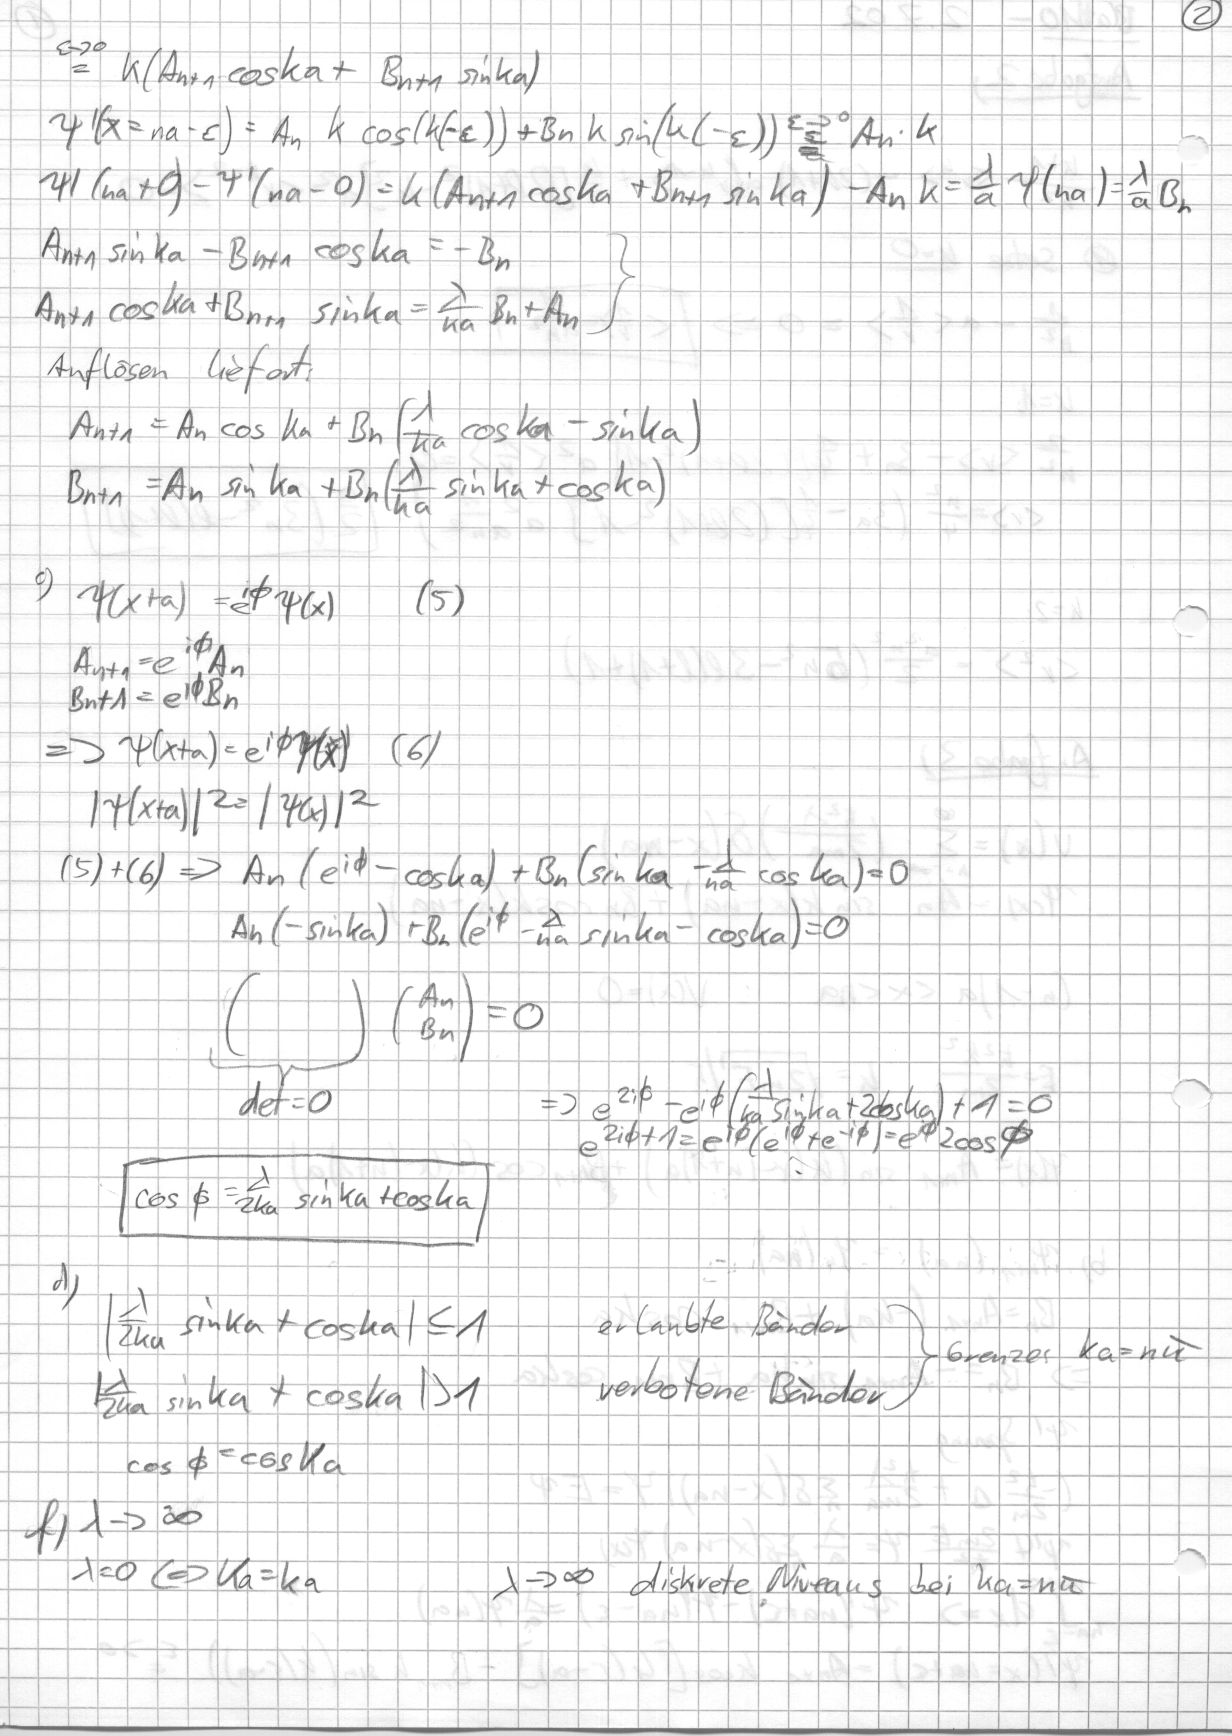 ②
ε→0
= k(An+1 coska + Bn+1 sinka)
ψ'(x=na-ε) = An k cos(k(-ε)) + Bn k sin(k(-ε)) ε→0 = An·k
ψ'(na+0) - ψ'(na-0) = k(An+1 coska + Bn+1 sinka) - An k = λ/a ψ(na) = λ/a Bn
An+1 sinka - Bn+1 coska = -Bn }
An+1 coska + Bn+1 sinka = λ/ka Bn + An
Auflösen liefert:
An+1 = An cos ka + Bn (λ/ka coska - sinka)
Bn+1 = An sin ka + Bn (λ/ka sinka + coska)
c) ψ(x+a) = e^iϕ ψ(x) (5)
An+1 = e^iϕ An
Bn+1 = e^iϕ Bn
=> ψ(x+a) = e^iϕ ψ(x) (6)
|ψ(x+a)|² = |ψ(x)|²
(5)+(6) => An (e^iϕ - coska) + Bn (sinka - λ/ka cos ka) = 0
An (-sinka) + Bn (e^iϕ - λ/ka sinka - coska) = 0
( ) (An Bn) = 0
det=0
=> e^2iϕ - e^iϕ (λ/ka sinka + 2coska) + 1 = 0
e^2iϕ + 1 = e^iϕ (e^iϕ + e^-iϕ) = e^iϕ 2cosϕ
cos ϕ = λ/2ka sinka + coska
d)
|λ/2ka sinka + coska| ≤ 1 erlaubte Bänder } Grenzen ka = nπ
|λ/2ka sinka + coska| > 1 verbotene Bänder
cos ϕ = cosKa
f) λ → ∞
λ=0 <=> Ka = ka λ→∞ diskrete Niveaus bei ka = nπ